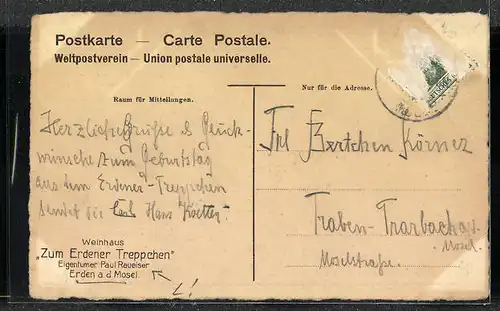 Postkarte — Carte Postale.
Weltpostverein — Union postale universelle.
Raum für Mitteilungen.
Nur für die Adresse.
Herzliche Grüße & Glück-
wünsche zum Geburtstag
aus dem Erdener-Treppchen
sendet dir Carl Hans
Weinhaus
„Zum Erdener Treppchen"
Eigentümer Paul Raueiser
Erden a. d. Mosel.
Frl Bertchen Körner
Traben-Trarbach a.
Mosel.
Moselstraße.